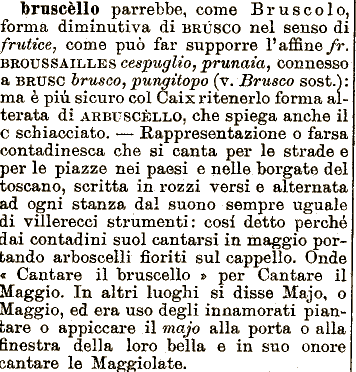 bruscèllo parrebbe, come Bruscolo,
forma diminutiva di BRUSCO nel senso di
frutice, come può far supporre l'affine fr.
BROUSSAILLES cespuglio, prunaia, connesso
a BRUSC brusco, pungitopo (v. Brusco sost.):
ma è piú sicuro col Caix ritenerlo forma al-
terata di ARBUSCÈLLO, che spiega anche il
C schiacciato. — Rappresentazione o farsa
contadinesca che si canta per le strade e
per le piazze nei paesi e nelle borgate del
toscano, scritta in rozzi versi e alternata
ad ogni stanza dal suono sempre uguale
di villerecci strumenti: cosí detto perché
dai contadini suol cantarsi in maggio por-
tando arboscelli fioriti sul cappello. Onde
« Cantare il bruscello » per Cantare il
Maggio. In altri luoghi si disse Majo, o
Maggio, ed era uso degli innamorati pian-
tare o appiccare il majo alla porta o alla
finestra della loro bella e in suo onore
cantare le Maggiolate.